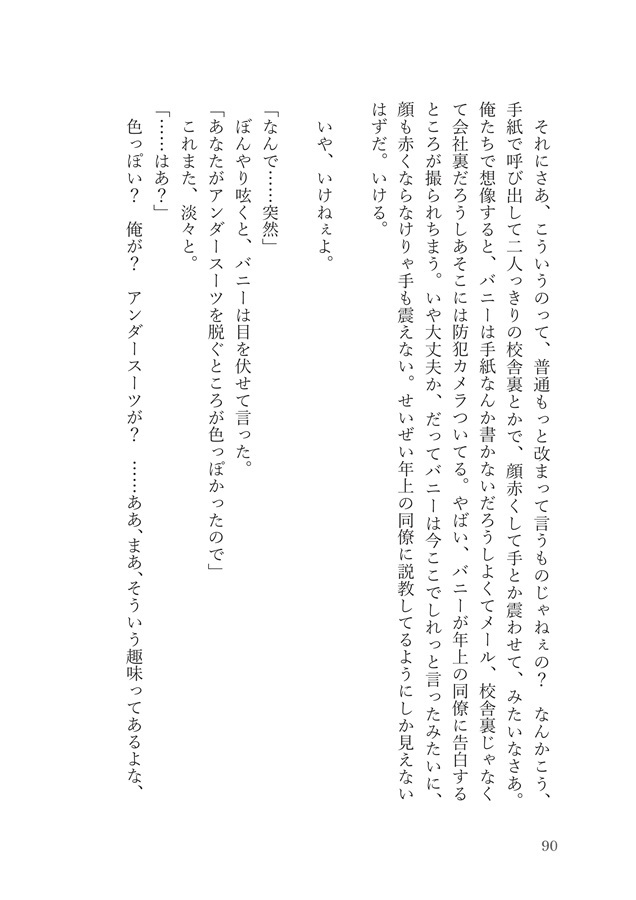 それにさあ、こういうのって、普通もっと改まって言うものじゃねぇの？　なんかこう、
手紙で呼び出して二人っきりの校舎裏とかで、顔赤くして手とか震わせて、みたいなさあ。
俺たちで想像すると、バニーは手紙なんか書かないだろうしよくてメール、校舎裏じゃなく
て会社裏だろうしあそこには防犯カメラついてる。やばい、バニーが年上の同僚に告白する
ところが撮られちまう。いや大丈夫か、だってバニーは今ここでしれっと言ったみたいに、
顔も赤くならなけりゃ手も震えない。せいぜい年上の同僚に説教してるようにしか見えない
はずだ。いける。
　いや、いけねぇよ。
「なんで……突然」
　ぼんやり呟くと、バニーは目を伏せて言った。
「あなたがアンダースーツを脱ぐところが色っぽかったので」
　これまた、淡々と。
「……はあ？」
　色っぽい？　俺が？　アンダースーツが？　……ああ、まあ、そういう趣味ってあるよな、
90